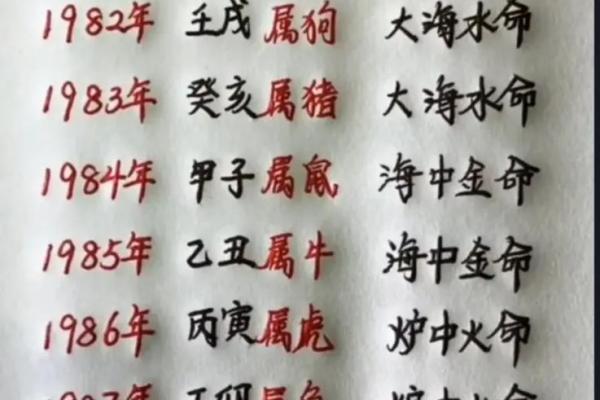 1982年 壬戌 属狗 大海水命
1983年 癸亥 属猪 大海水命
1984年 甲子 属鼠 海中金命
1985年 乙丑 属牛 海中金命
1986年 丙寅 属虎 炉中火命